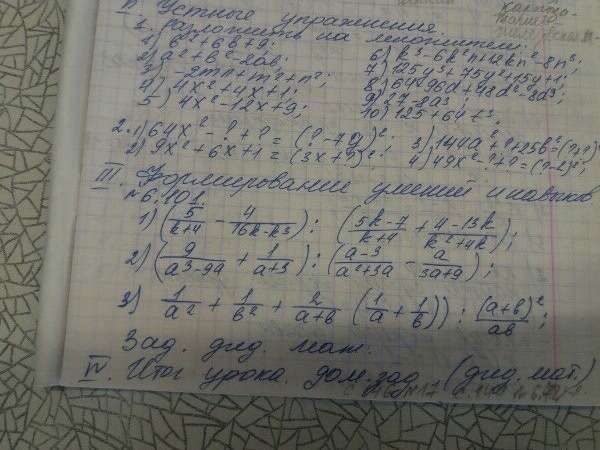 II. Устные упражнения.
1. Разложить на множители:
1) b²+6b+9;
2) a²+b²-2ab;
3) -2mn+m²+n²;
4) 4x²+4x+1;
5) 4x²-12x+9;
6) k³-6k²n+12kn²-8n³;
7) 125y³+75y²+15y+1;
8) 64-96d+48d²-8d³;
9) 27-8a³;
10) 125+64t³.
2. 1) 64x²-?+?=(?-7y)²;
2) 9x²+6x+1=(3x+?)²;
3) 144a²+?+25b²=(?+?)²;
4) 49x²-?+?=(?-2)²;
III. Формирование умений и навыков
№6.101.
1) (5/(k+4) - 4/(16k-k³)) : ((5k-7)/(k+4) + (4-13k)/(k²+4k));
2) (9/(a³-9a) + 1/(a+3)) : ((a-3)/(a²+3a) - a/(3a+9));
3) 1/a² + 1/b² + 2/(a+b) (1/a + 1/b)) : (a+b)²/ab;
Зад. дид. мат.
IV. Итог урока. дом. зад. (дид. мат.)